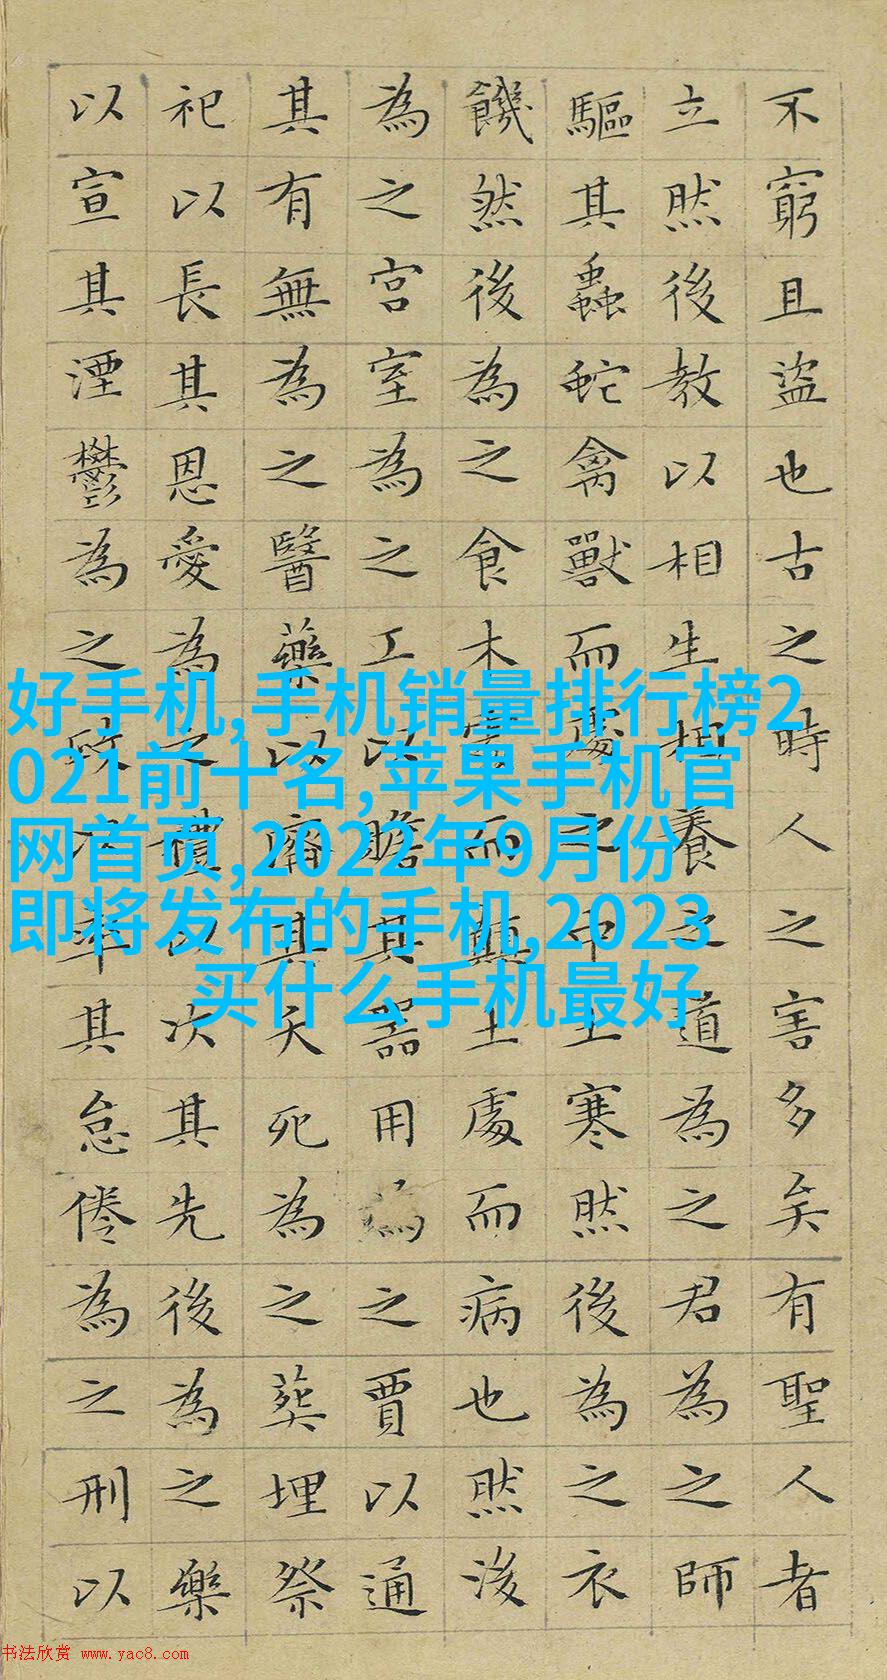 不窮且盜也古之時人之害多矣有聖人者
立然後教以相生相養之道為之君為之師
驅其蟲蛇禽獸而處之中土寒然後為之衣
饑然後為之食木處而顛土處而病也然後
為之宮室為之工以贍其器用為之賈以通
其有無為之醫藥以濟其夭死為之葬埋祭
祀以長其恩愛為之禮以次其先後為之樂
以宣其湮鬱為之政以率其怠倦為之刑以
好手机,手机销量排行榜2
021前十名,苹果手机官
网首页,2022年9月份
即将发布的手机,2023
买什么手机最好
书法欣赏 www.yac8.com